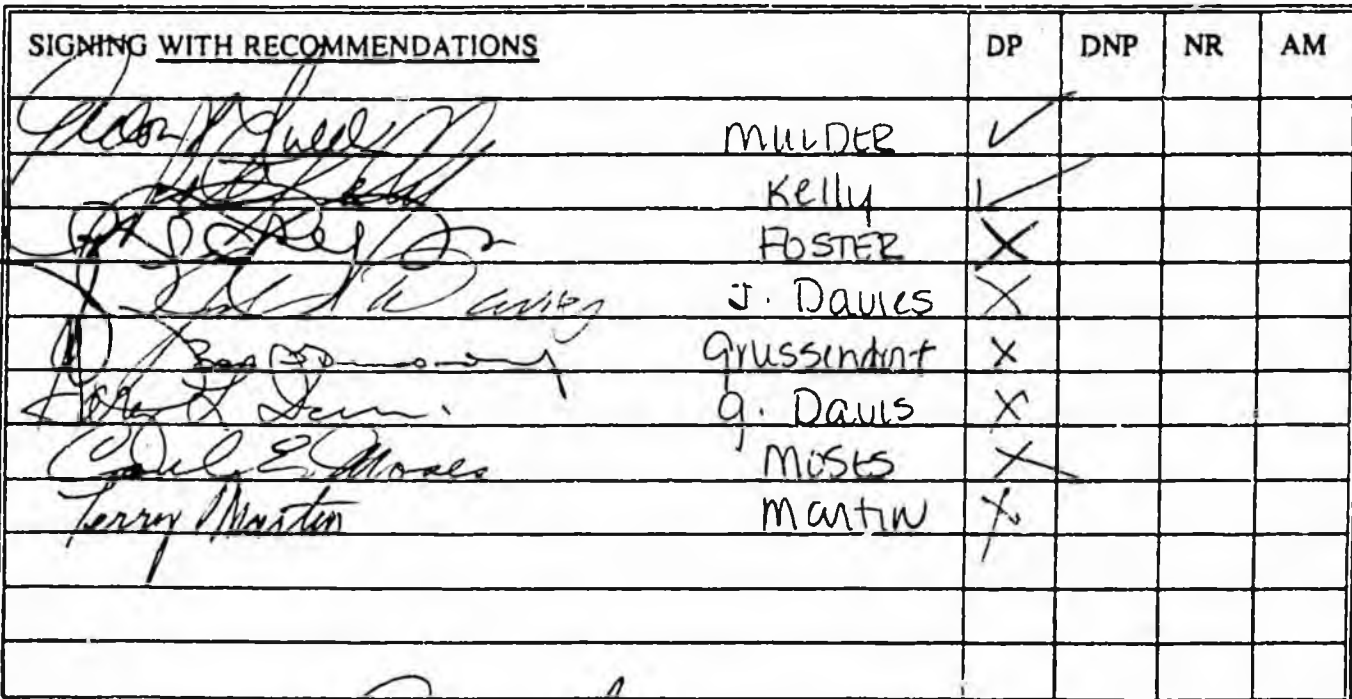 SIGNING WITH RECOMMENDATIONS DP DNP NR AM
MULDER ✓
Kelly ✓
FOSTER X
J. Davies X
Grussendorf X
G. Davis X
Carl E. Moses MOSES X
Terry Martin Martin X